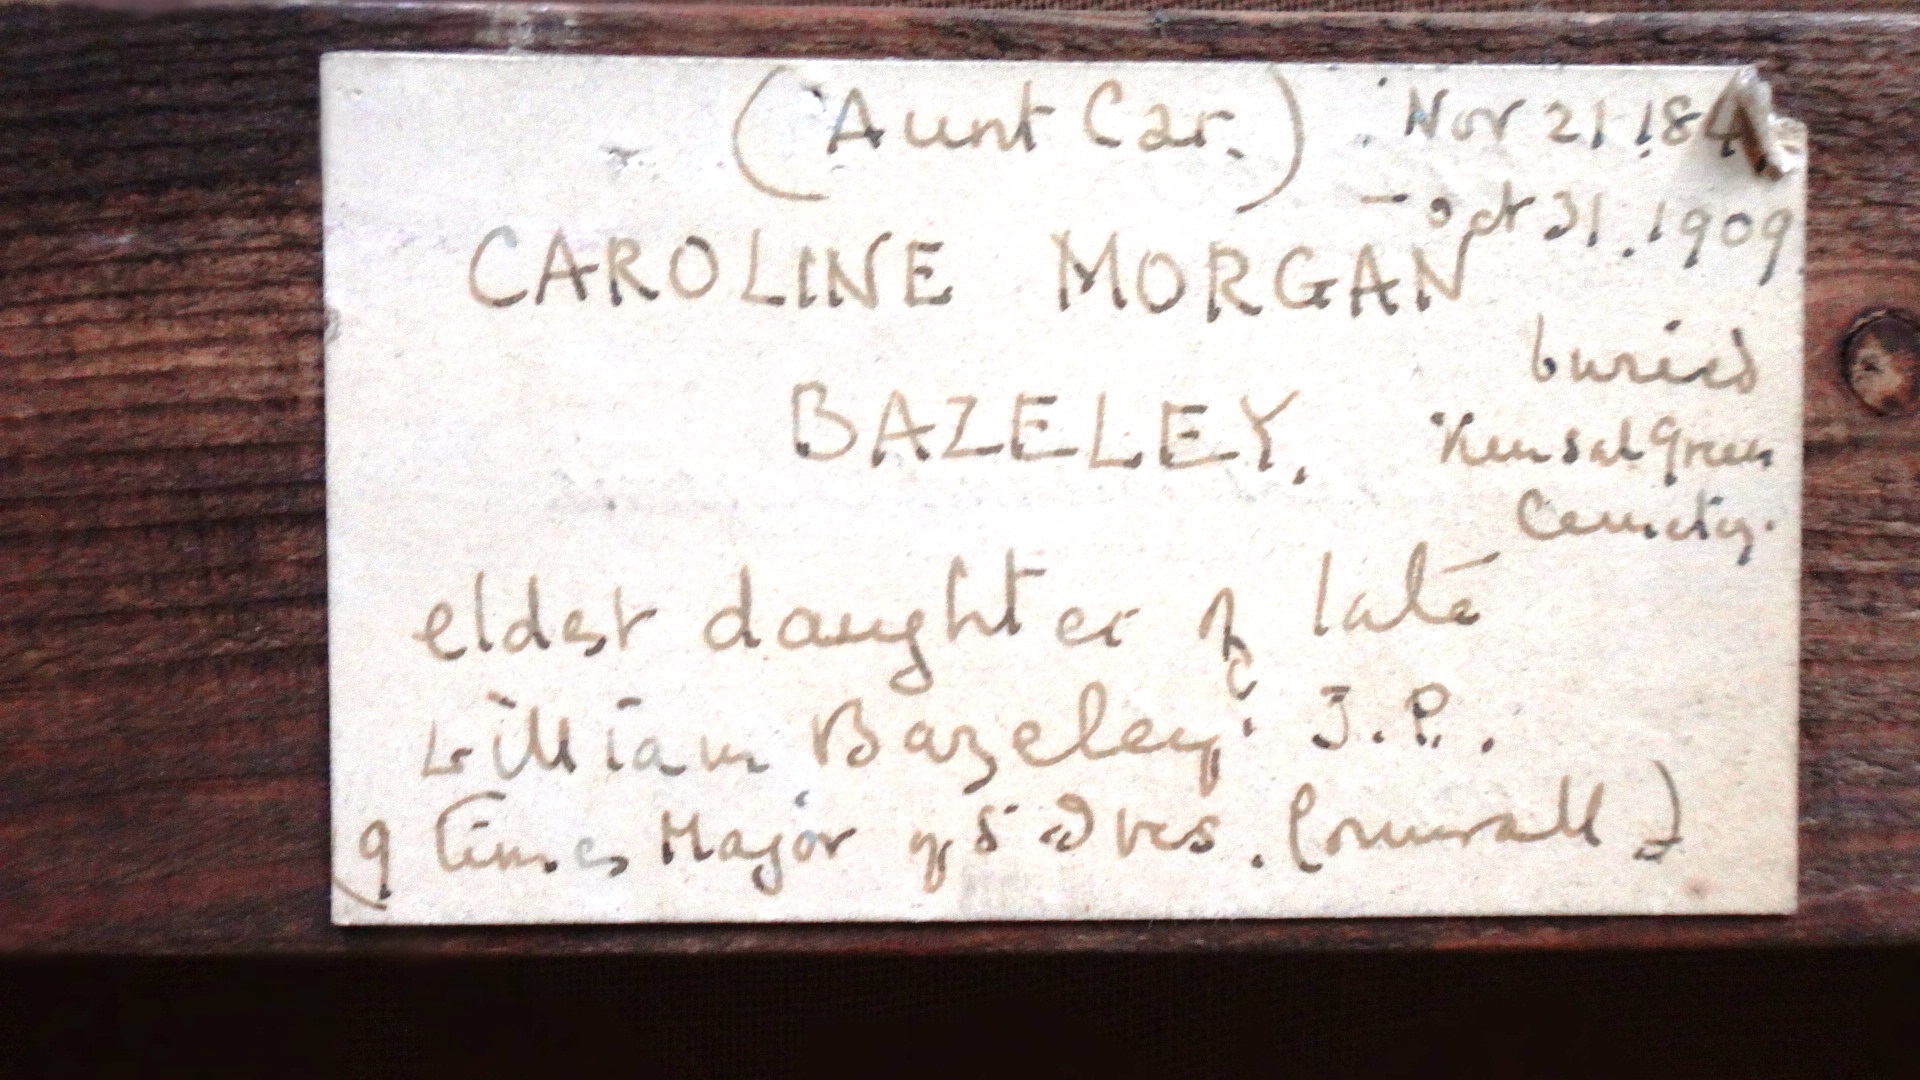 (Aunt Car.) Nov 21 184
- Oct 31. 1909
CAROLINE MORGAN
BAZELEY.
buried
Kensal Green
Cemetery.
eldest daughter of late
William Bazeley J.P.
(9 times Major of St Ives. Cornwall)